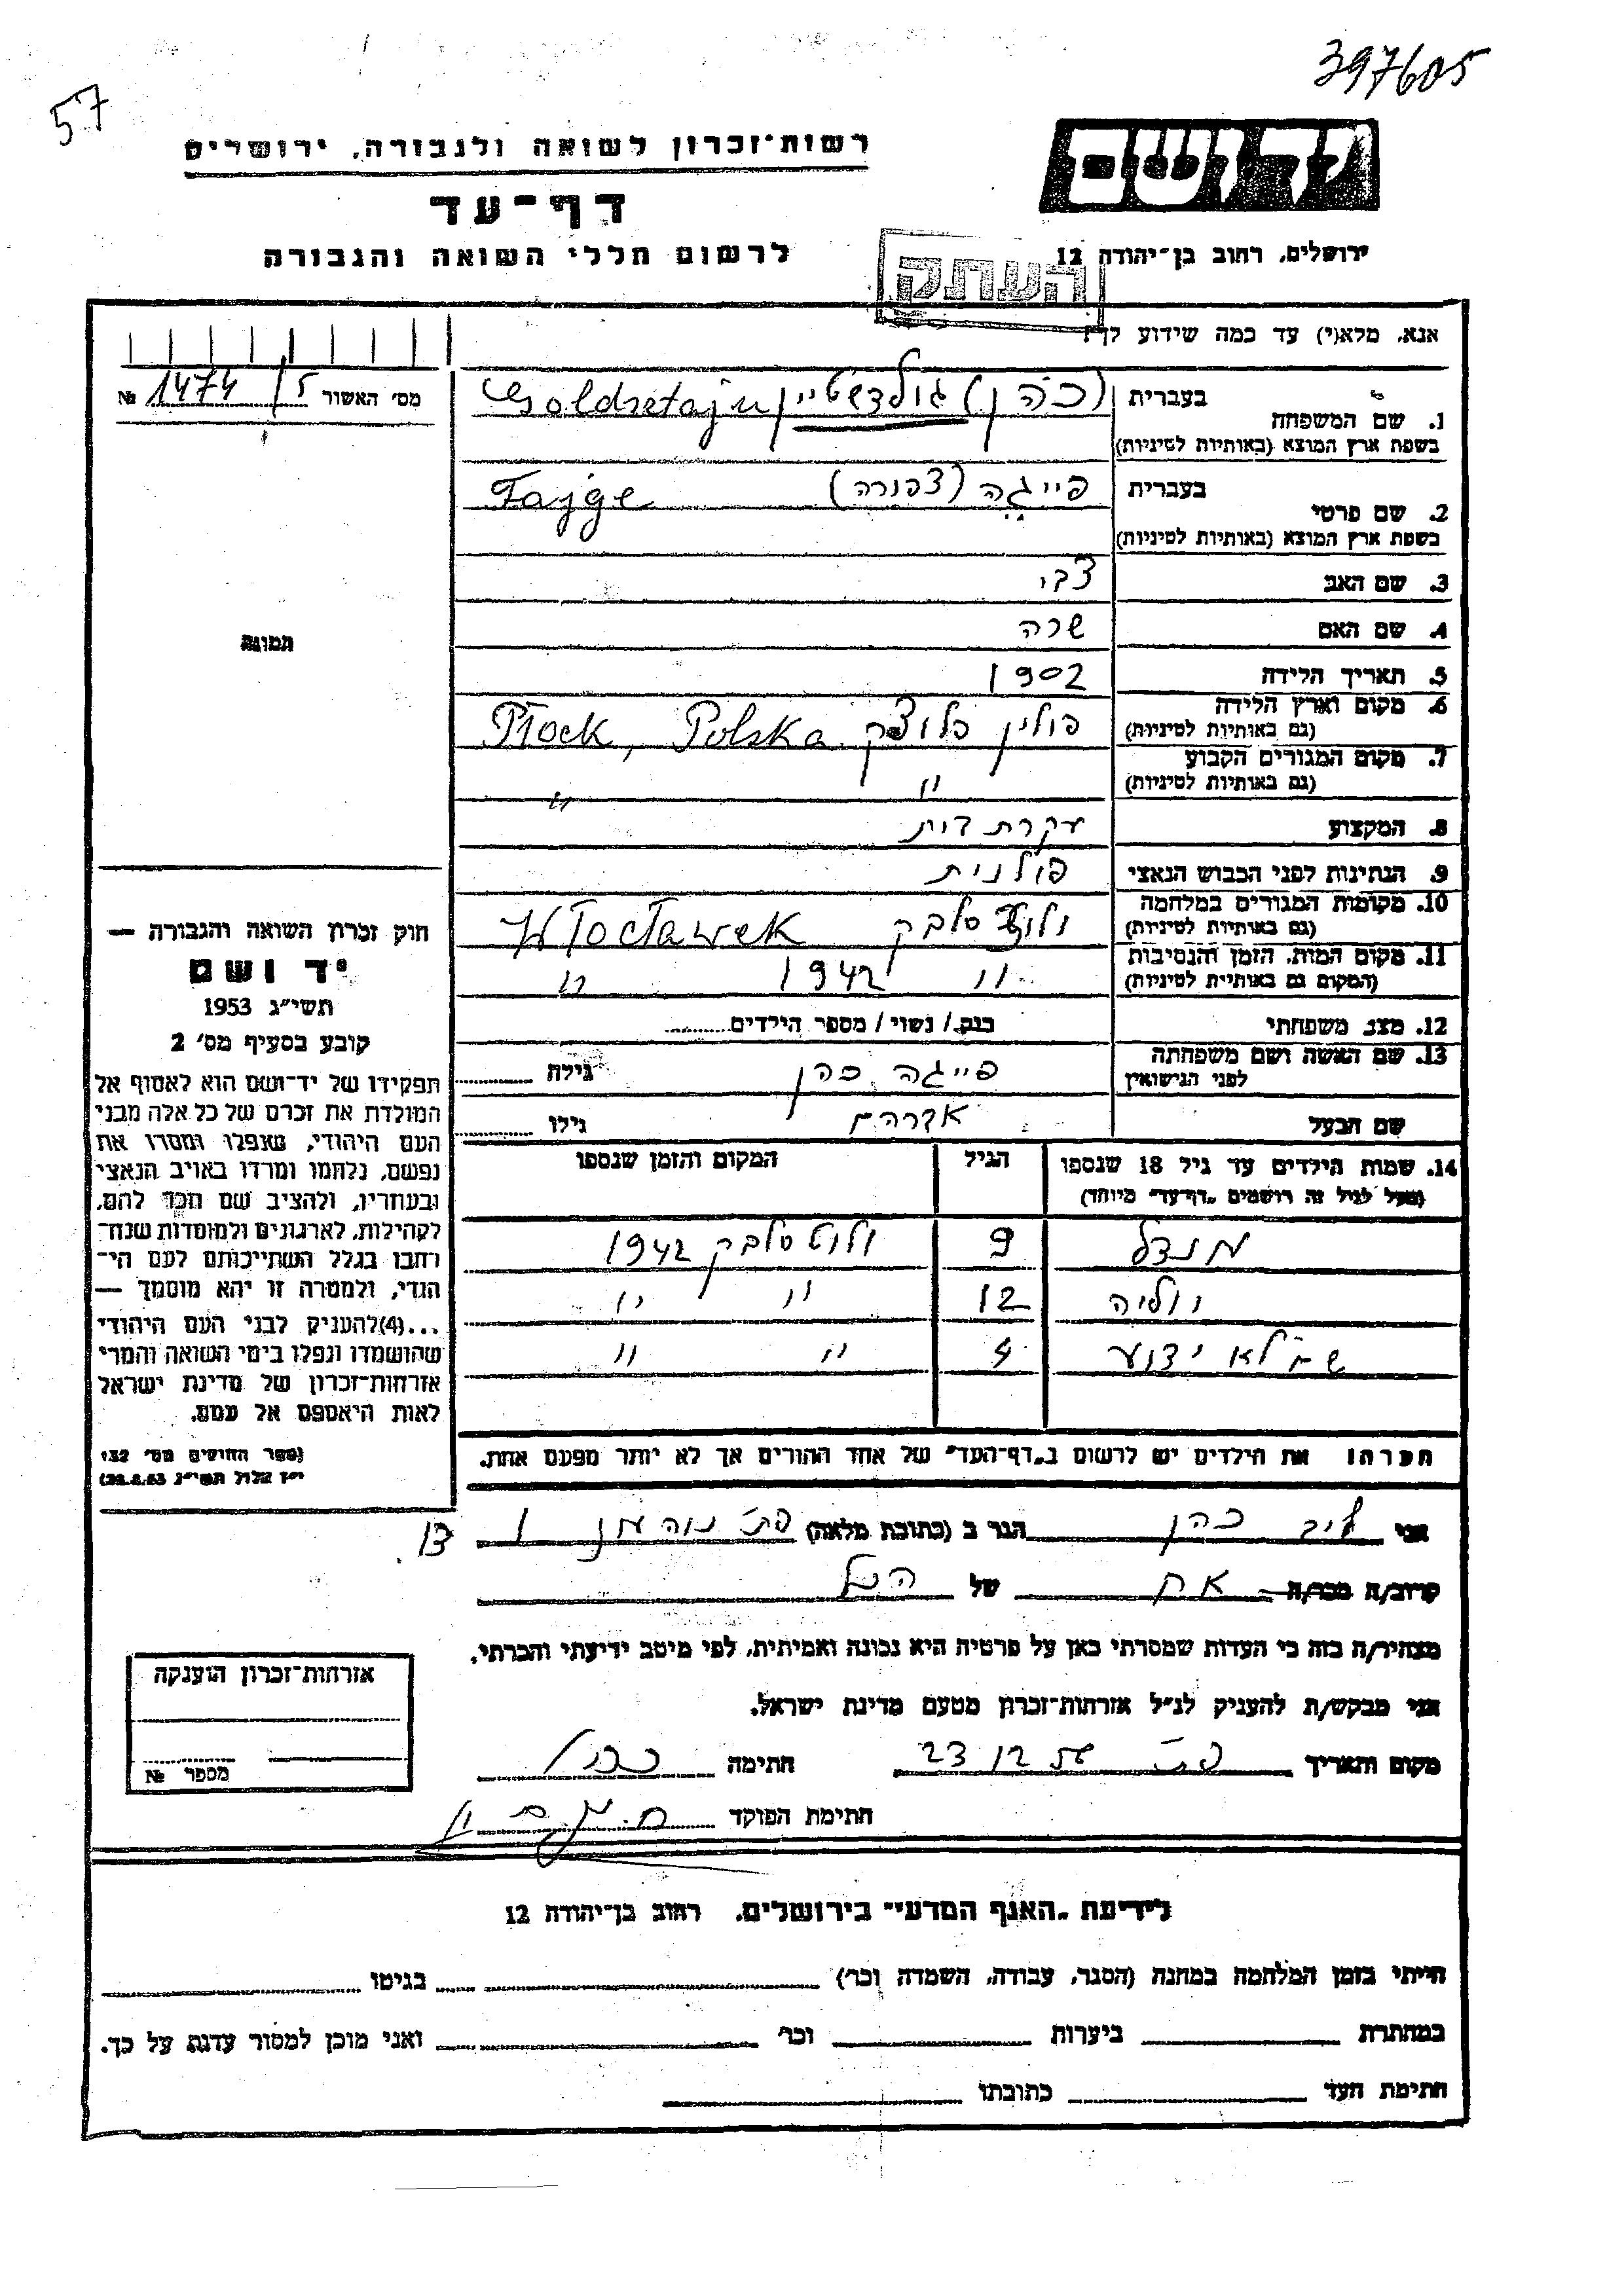 397605
57
רשות-זכרון לשואה ולגבורה, ירושלים
יד ושם
דף-עד
לרשום חללי השואה והגבורה
ירושלים, רחוב בן-יהודה 12
העתק
אנא, מלא(י) עד כמה שידוע לך!
מס' האשור 1474/5 №
1. שם המשפחה בעברית (כהן) גולדשטיין Goldsztajn
בשפת ארץ המוצא (באותיות לטיניות)
2. שם פרטי בעברית פייגה (צפורה) Fajge
בשפת ארץ המוצא (באותיות לטיניות)
3. שם האב צבי
4. שם האם שרה
5. תאריך הלידה 1902
6. מקום וארץ הלידה (גם באותיות לטיניות) פולין פלוצק Płock, Polska
7. מקום המגורים הקבוע (גם באותיות לטיניות) " "
8. המקצוע עקרת בית
9. הנתינות לפני הכבוש הנאצי פולנית
10. מקומות המגורים במלחמה (גם באותיות לטיניות) ולוצלבק Włocławek
11. מקום המות, הזמן והנסיבות (המקום גם באותיות לטיניות) " 1942 "
12. מצב משפחתי רווק / נשוי / מספר הילדים
13. שם האשה ושם משפחתה לפני הנישואין פייגה כהן גילה
שם הבעל אברהם גילו
14. שמות הילדים עד גיל 18 שנספו (מעל לגיל זה רושמים „דף-עד" מיוחד) הגיל המקום והזמן שנספו
מנדל 9 ולוצלבק 1942
12 " "
שם לא ידוע 4 " "
הערה! את הילדים יש לרשום ב„דף-העד" של אחד ההורים אך לא יותר מפעם אחת.
תמונה
חוק זכרון השואה והגבורה —
יד ושם
תשי"ג 1953
קובע בסעיף מס' 2
תפקידו של יד-ושם הוא לאסוף אל
המולדת את זכרם של כל אלה מבני
העם היהודי, שנפלו ומסרו את
נפשם, נלחמו ומרדו באויב הנאצי
ובעוזריו, ולהציב שם וזכר להם,
לקהילות, לארגונים ולמוסדות שנח-
רבו בגלל השתייכותם לעם הי-
הודי, ולמטרה זו יהא מוסמך —
...(4) להעניק לבני העם היהודי
שהושמדו ונפלו בימי השואה והמרי
אזרחות-זכרון של מדינת ישראל
לאות היאספם אל עמם.
(ספר החוקים מס' 132
י"ז אלול תשי"ג 28.8.53)
אני לייב כהן הגר ב (כתובת מלאה)
קרוב/ה מכר/ה אח של הנ"ל
מצהיר/ה בזה כי העדות שמסרתי כאן על פרטיה היא נכונה ואמיתית, לפי מיטב ידיעתי והכרתי.
אני מבקש/ת להעניק לנ"ל אזרחות-זכרון מטעם מדינת ישראל.
מקום ותאריך חתימה
חתימת הפוקד
אזרחות-זכרון הוענקה
מספר №
לידיעת „האגף המדעי" בירושלים, רחוב בן-יהודה 12
הייתי בזמן המלחמה במחנה (הסגר, עבודה, השמדה וכו') בגיטו
במחתרת ביערות וכו' ואני מוכן למסור עדות על כך.
חתימת העד כתובתו